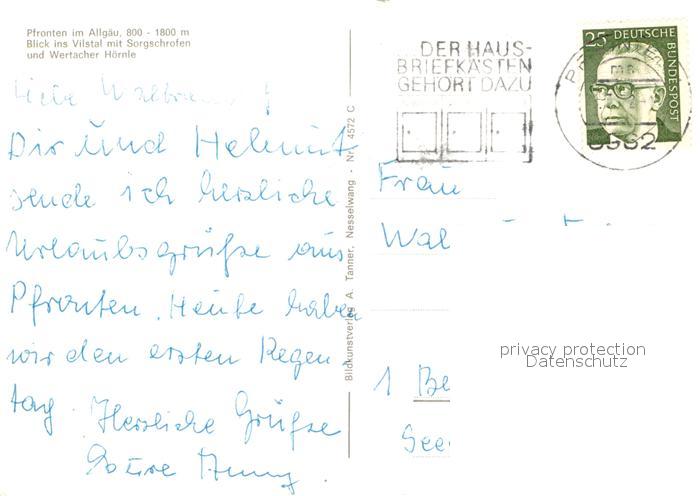 Pfronten im Allgäu, 800 - 1800 m
Blick ins Vilstal mit Sorgschrofen
und Wertacher Hörnle
Dir und Helmut
sende ich herzliche
Urlaubsgrüße aus
Pfronten. Heute haben
wir den ersten Regen
tag. Herzliche Grüße
Bildkunstverlag A. Tanner, Nesselwang - Nr. 4572 C
DER HAUS-
BRIEFKASTEN
GEHÖRT DAZU
25 DEUTSCHE
BUNDESPOST
8962
Frau
Wal
1 Be
See
privacy protection
Datenschutz